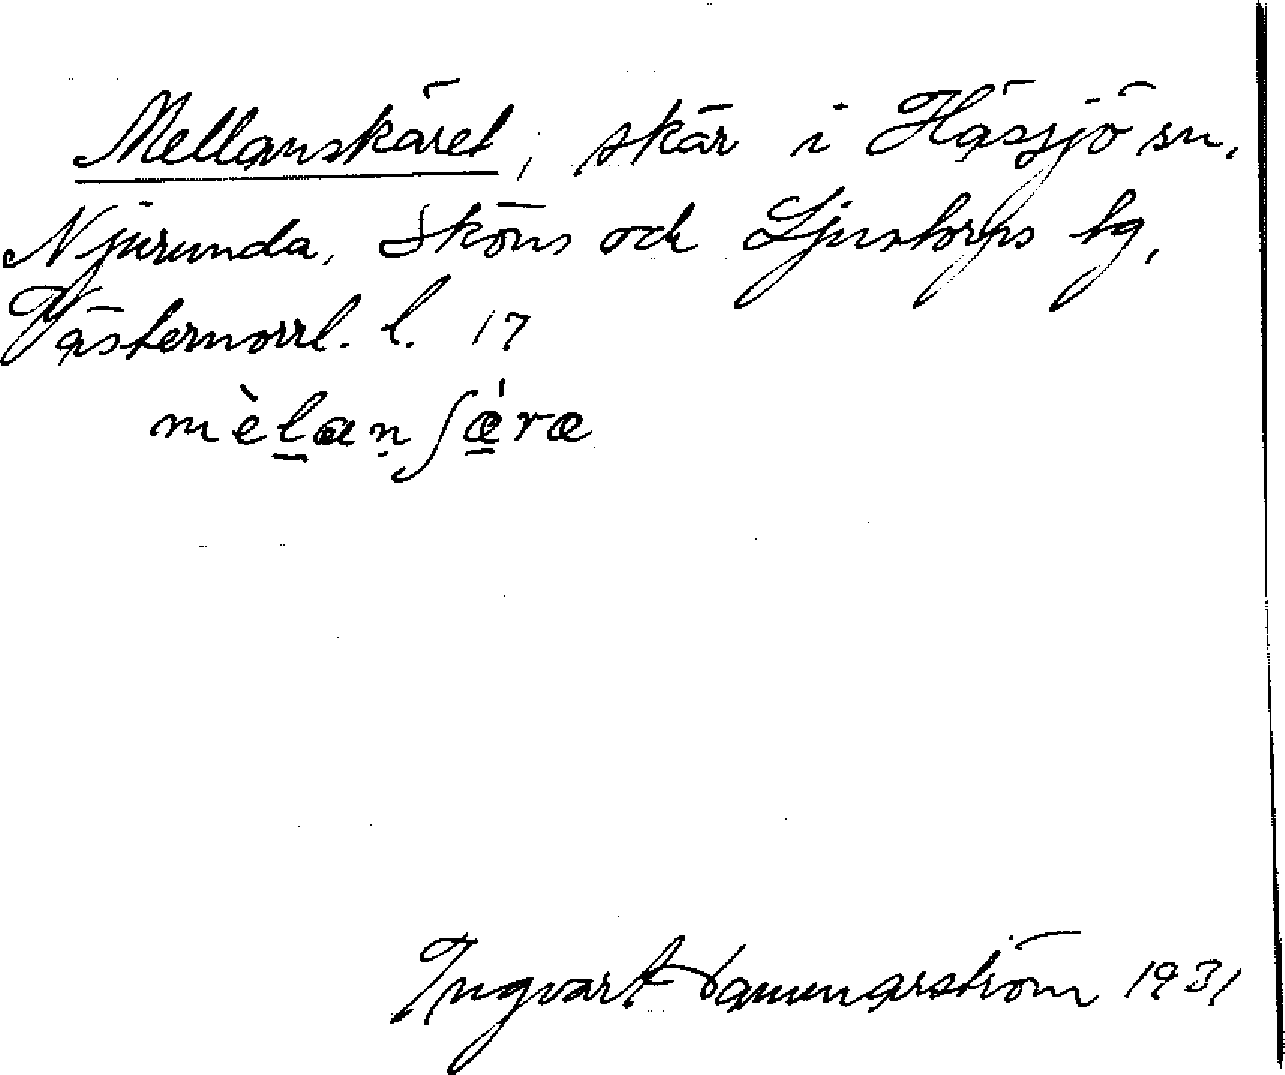 Mellanskäret, skär i Hässjö sn,
Njurunda, Sköns och Ljustorps tg,
Västernorrl. l. 17
mèlanʃǽra
Ingvart 1931